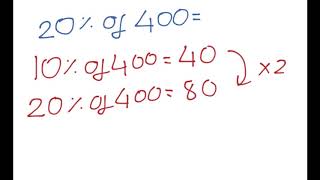 20% of 400=
10% of 400 = 40
20% of 400 = 80
×2